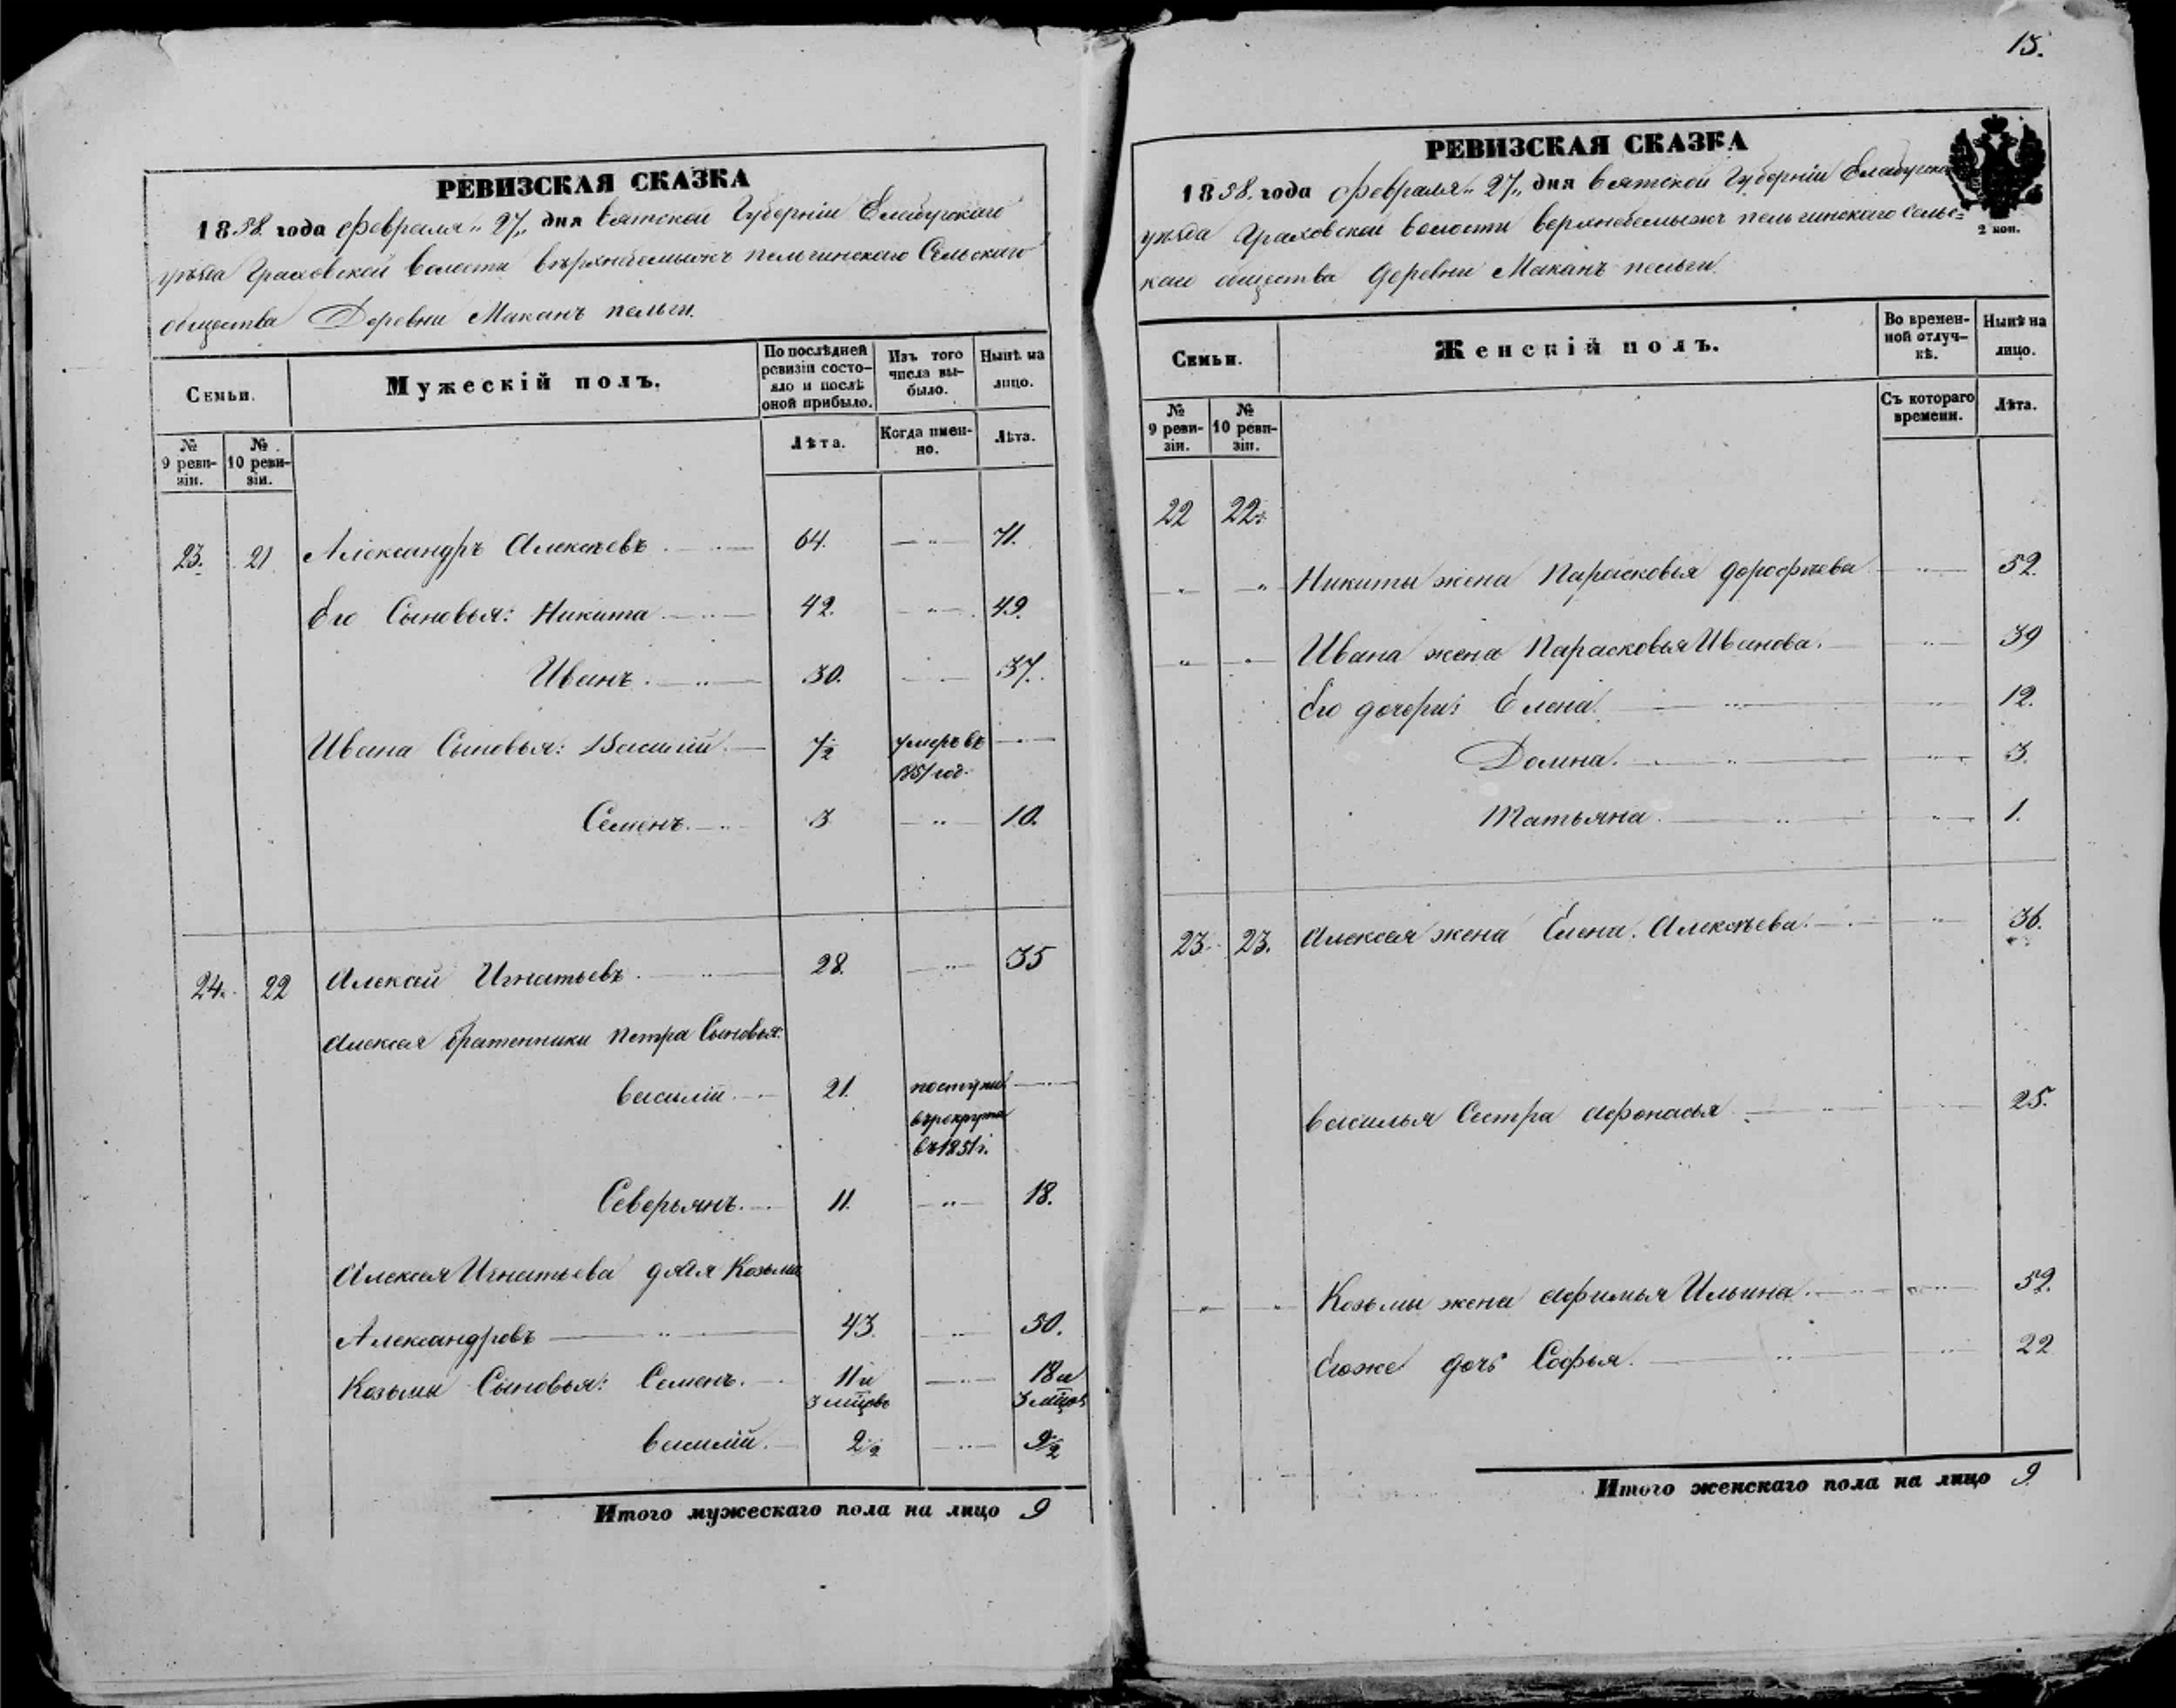 15.
РЕВИЗСКАЯ СКАЗКА
1858. года февраля „27„ дня Вятской Губерніи Елабугскаго
уѣзда Граховской волости верхнебемыжъ пельгинскаго Сельскаго
общества Деревни Маканъ пельги.
Семьи.
Мужескій полъ.
По послѣдней ревизіи состояло и послѣ оной прибыло.
Изъ того числа выбыло.
Нынѣ на лицо.
№ 9 ревизіи.
№ 10 ревизіи.
Лѣта.
Когда именно.
Лѣта.
23. 21 Александръ Алексѣевъ 64. 71.
Его Сыновья: Никита 42. 49.
Иванъ 30. 37.
Ивана Сыновья: Василій 7½ умеръ въ
1851 год.
Семенъ 3 10.
24. 22 Алексей Игнатьевъ 28. 35
Алексея братенники Петра Сыновья:
Василій 21. поступил
въ рекрута
въ 1851 г.
Северьянъ 11. 18.
Алексея Игнатьева дядя Козьма
Александровъ 43. 50.
Козьмы Сыновья: Семенъ 11 и 18 и
3 мцовъ 3 мцов
Василій 2½ 9½
Итого мужескаго пола на лицо 9
РЕВИЗСКАЯ СКАЗКА
1858. года февраля „27„ дня Вятской Губерніи Елабугска
уѣзда Граховской волости верхнебемыжъ пельгинскаго сельс=
каго общества Деревни Маканъ пельги.
2 коп.
Семьи.
Женскій полъ.
Во временной отлучкѣ.
Нынѣ на лицо.
№ 9 ревизіи.
№ 10 ревизіи.
Съ котораго времени.
Лѣта.
22 22.
Никиты жена Парасковья Дорофѣева 52.
Ивана жена Парасковья Иванова. 39
Его дочери: Елена. 12.
Домна. 3.
Татьяна 1.
23. 23. Алексея жена Елена Алексѣева. 36.
Василья Сестра Афонасья 25.
Козьмы жена Афимья Ильина. 52.
Егоже дочь Софья. 22
Итого женскаго пола на лицо 9